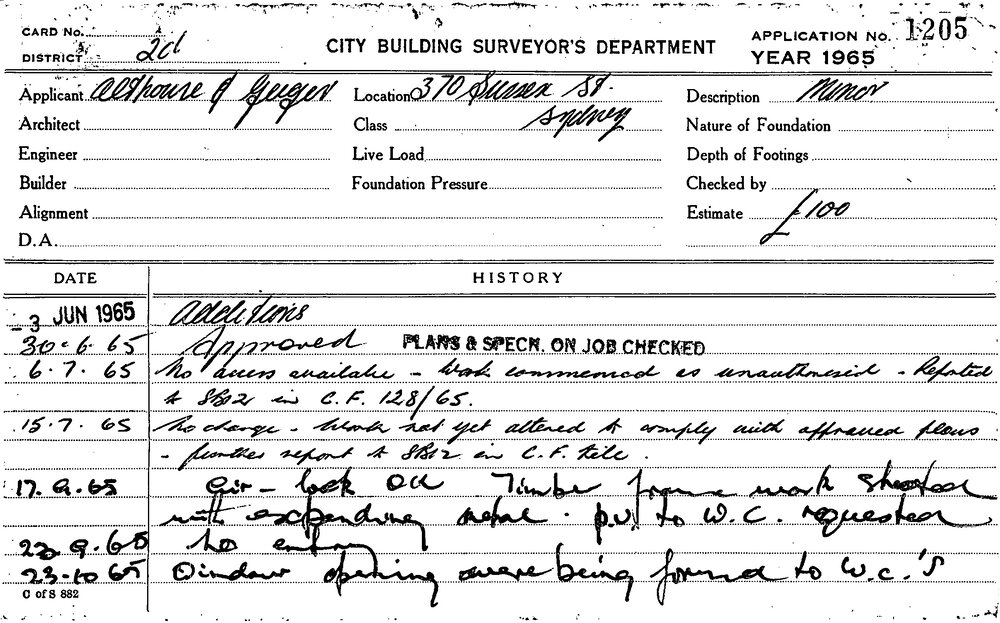 CARD No.
DISTRICT 2d
CITY BUILDING SURVEYOR'S DEPARTMENT
APPLICATION No. 1205
YEAR 1965
Applicant Althouse & Geiger
Location 370 Sussex St.
Description Minor
Architect
Class Sydney
Nature of Foundation
Engineer
Live Load
Depth of Footings
Builder
Foundation Pressure
Checked by
Alignment
Estimate £100
D.A.
DATE HISTORY
-3 JUN 1965 Additions
30-6-65 Approved PLANS & SPECN. ON JOB CHECKED
6.7.65 No access available - Work commenced as unauthorised - Reported
to in C.F. 128/65.
15.7.65 No change - Work not yet altered to comply with approved plans
- further report to in C.F. file.
17.9.65 Air-lock Timber frame work sheeted
with expanding metal. p.v. to W.C. requested
23.9.65 No entry
23-10-65 Window opening were being formed to W.C.'s
C of S 882